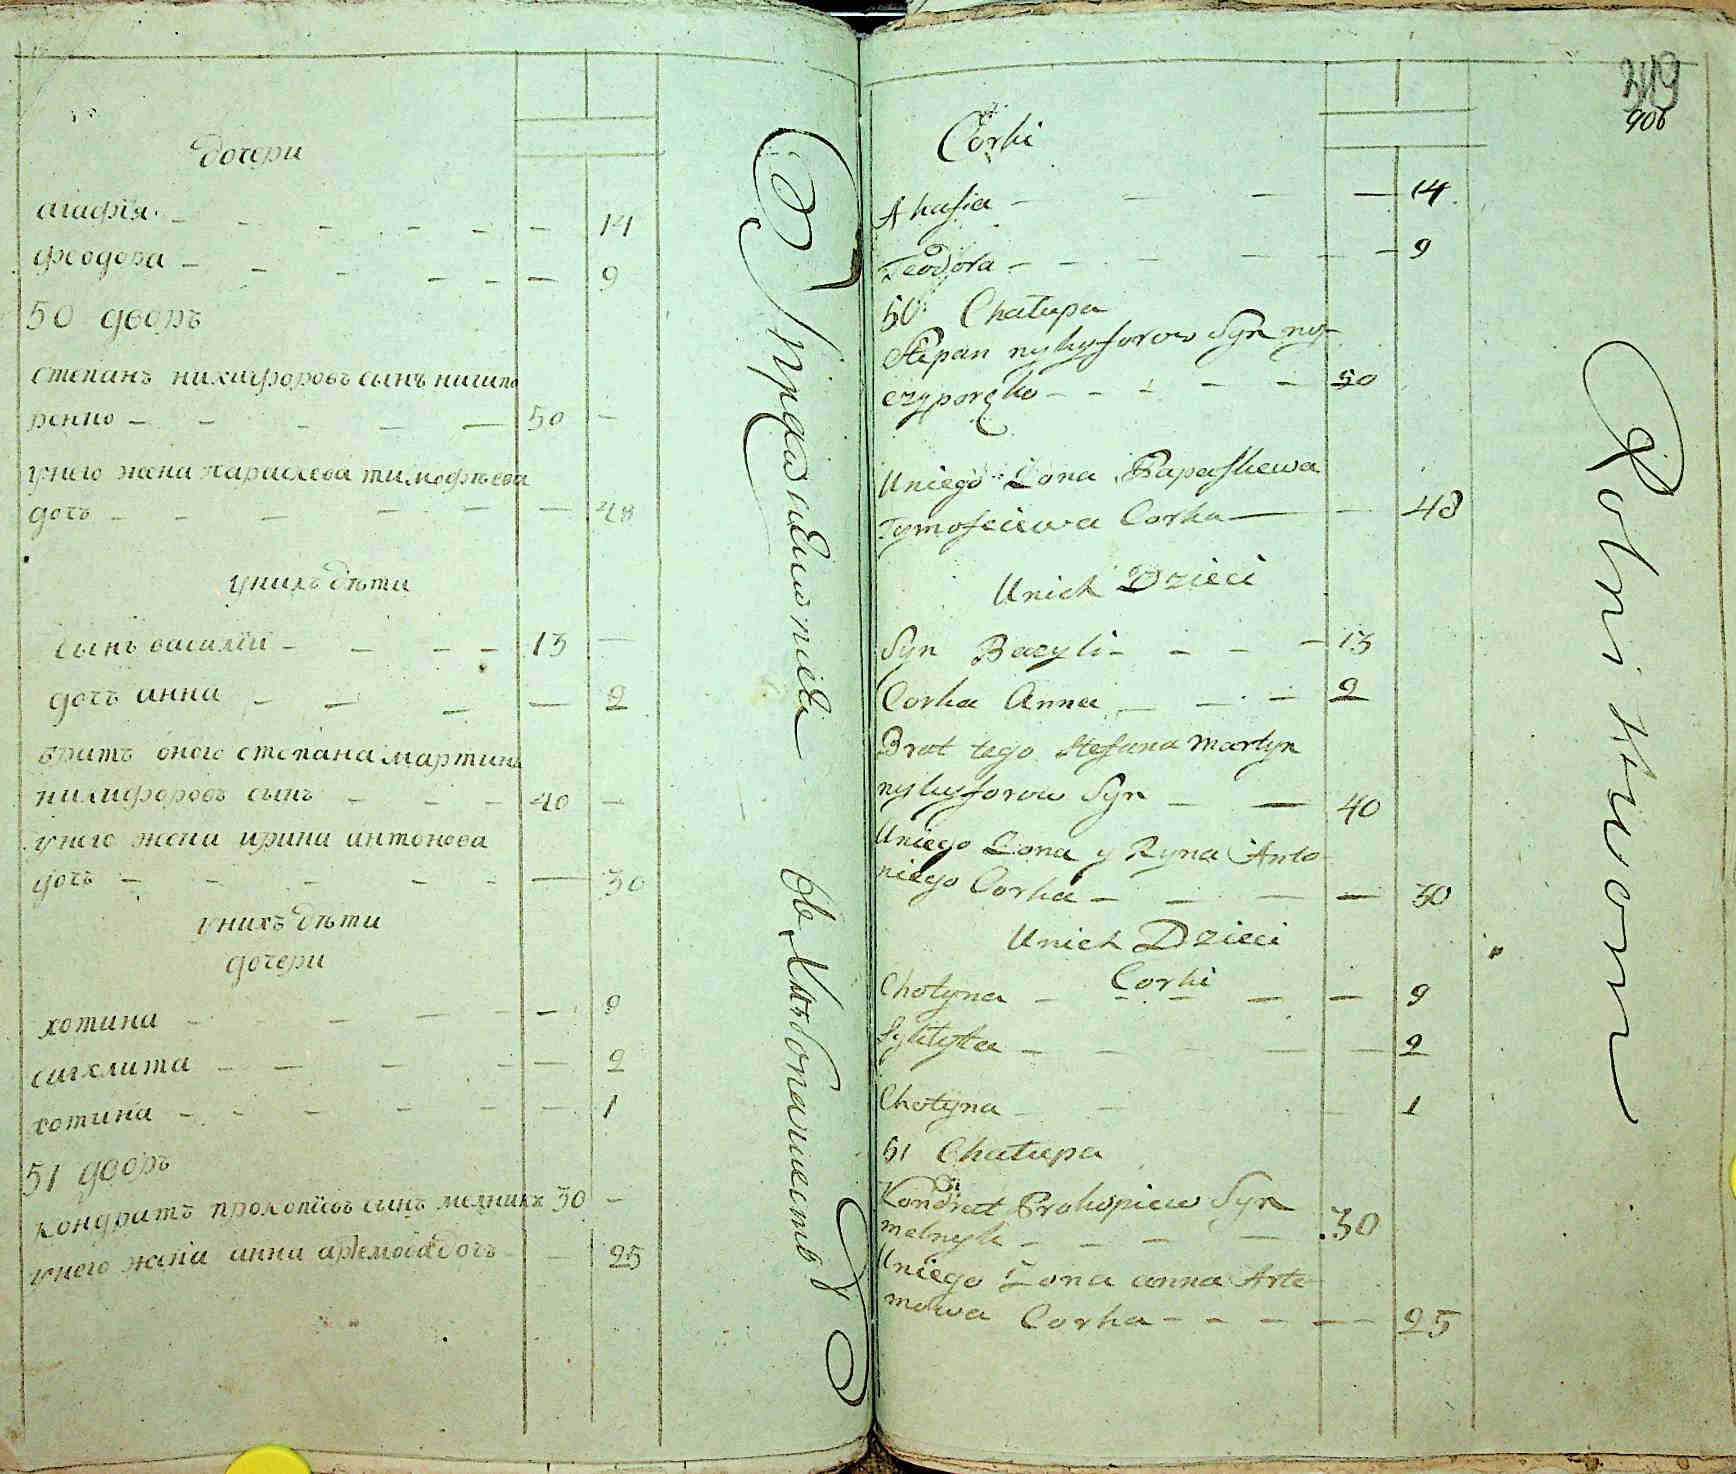 дочери
агафїя - - - - - - 14
феодора - - - - - - 9
50 дворъ
степанъ никифоровъ сынъ ничипо
ренко - - - - 50 -
унего жена параскева тимофѣева
дочь - - - - - - 48
унихъ дѣти
сынъ василїй - - - - 13 -
дочь анна - - - - 2
братъ оного степана мартинъ
никифоровъ сынъ - - - 40 -
унего жена ирина антонова
дочь - - - - - - 30
унихъ дѣти
дочери
хотина - - - - - - 9
сигклита - - - - - 2
хотина - - - - - - 1
51 дворъ
кондратъ прокопїевъ сынъ мелникъ 30 -
унего жена анна артемова дочь - - 25
349
906
Corki
Ahafia - - - - 14
Teodora - - - - - - 9
50 Chałupa
Stepan nykyforow Syn ny-
czyporęko - - - - - 50
Uniego Żona Paraskewa
Tymofeiewa Corka - - 48
Unich Dzieci
Syn Bazyli - - - - 13
Corka Anna - - - - 2
Brat tego Stefana Martyn
nykyforow Syn - - 40
Uniego Żona y Ryna Anto-
niego Corka - - - - 30
Unich Dzieci
Corki
Chotyna - - - - - 9
Syklyta - - - - - 2
Chotyna - - - 1
51 Chałupa
Kondrat Prokopiew Syn
melnyk - - - - 30
Uniego Żona anna Arte-
mowa Corka - - - - - 25